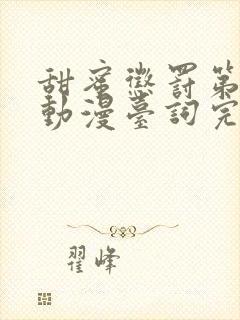 甜蜜懲罰第
動漫臺詞完
翟峰